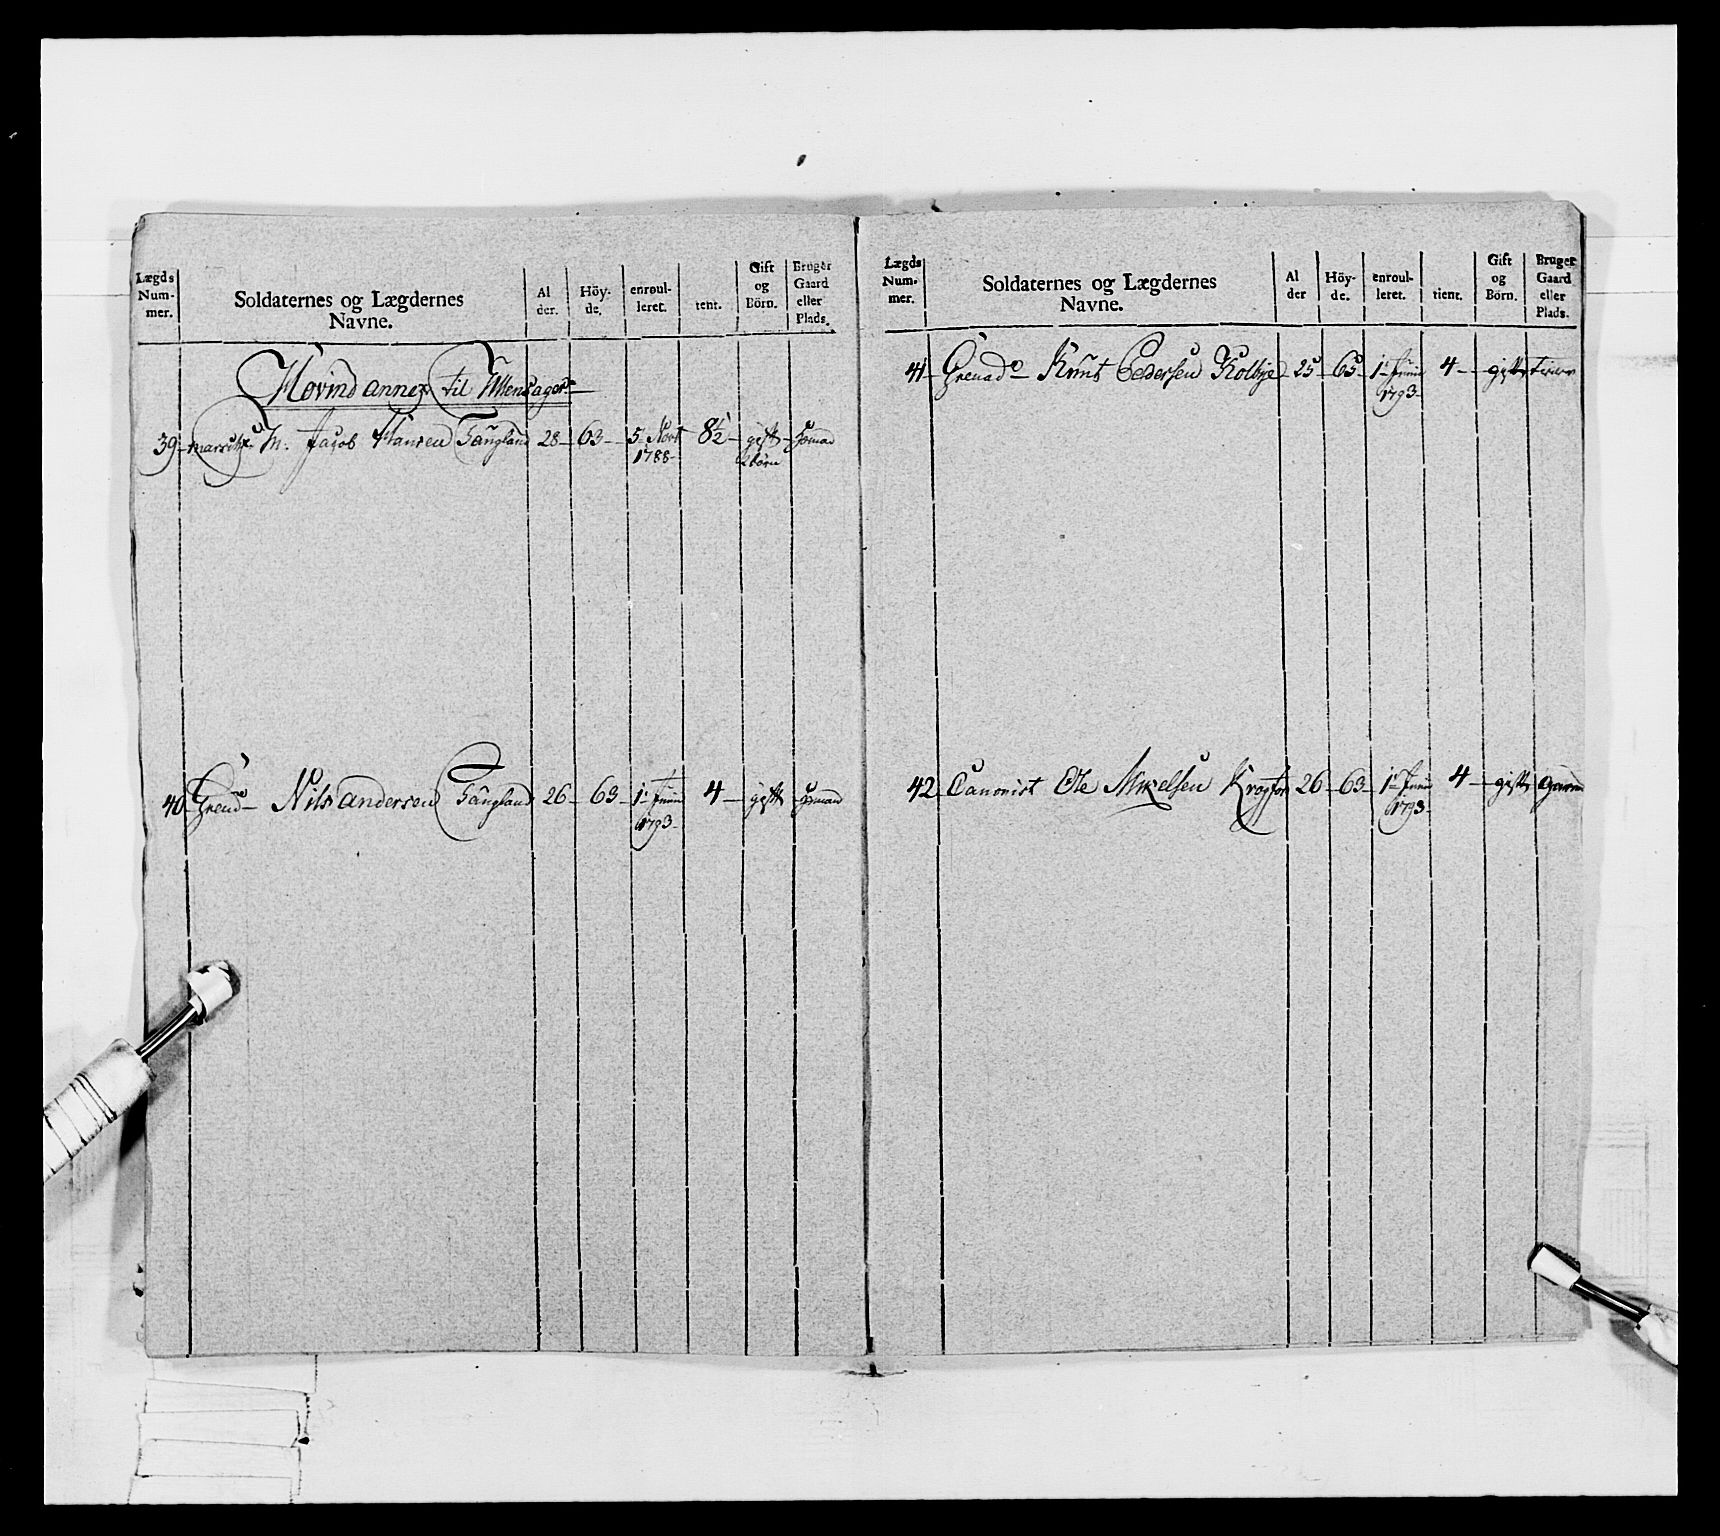 Lægds Num- mer.
Soldaternes og Lægdernes Navne.
Al der.
Höy- de.
enroul- leret.
tient.
Gift og Börn.
Bruger Gaard eller Plads.
Hovind annex til Ullensager
39 M. Jacob Hansen 28 63 5 1788 8½ gift 2 börn Husmand
40 Grend Nils Andersen 26 63 1 Juni 1793 4 gift Husmand
Lægds Num- mer.
Soldaternes og Lægdernes Navne.
Al der
Höy- de.
enroul- leret.
tient.
Gift og Börn.
Bruger Gaard eller Plads.
41 Grenad Knut Pedersen 25 65 1 Juni 1793 4 gift
42 Canonist Ole Mikelsen 26 63 1 Juni 1793 4 gift